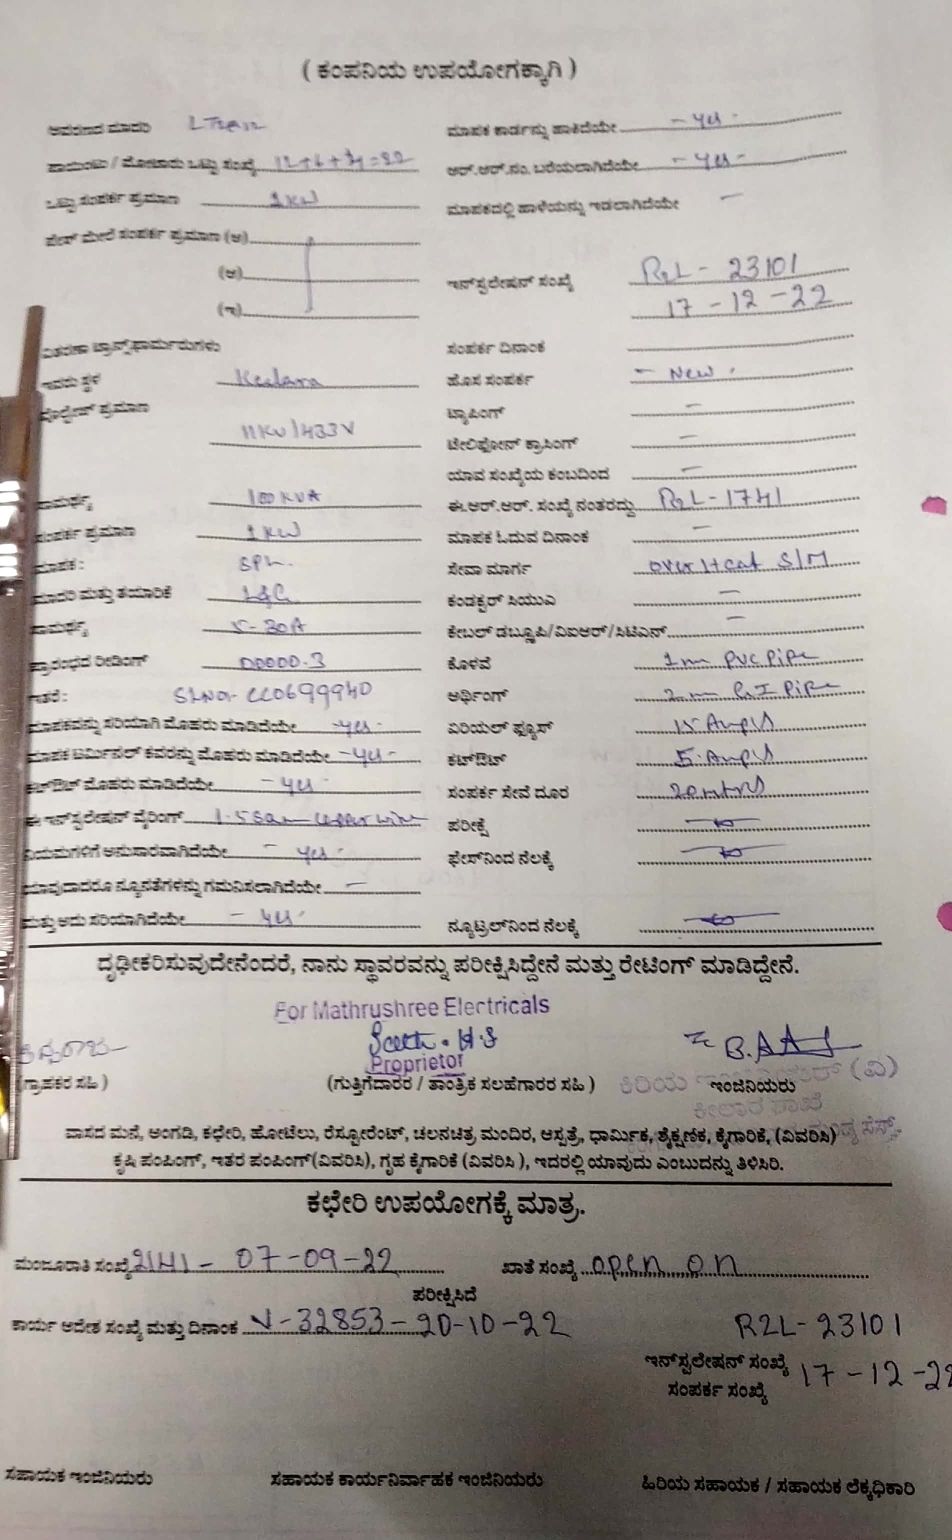 ( ಕಂಪನಿಯ ಉಪಯೋಗಕ್ಕಾಗಿ )
ಮಾಪಕ ಕಾರ್ಡನ್ನು ಹಾಕಿದೆಯೇ - yes -
ಪಾಯಿಂಟು / ಮೋಟಾರು ಒಟ್ಟು ಸಂಖ್ಯೆ ಆರ್.ಆರ್.ನಂ. ಬರೆಯಲಾಗಿದೆಯೇ - yes -
ಒಟ್ಟು ಸಂಪರ್ಕ ಪ್ರಮಾಣ 1KW ಮಾಪಕದಲ್ಲಿ ಹಾಳೆಯನ್ನು ಇಡಲಾಗಿದೆಯೇ -
ಫೇಸ್ ಮೇಲೆ ಸಂಪರ್ಕ ಪ್ರಮಾಣ (ಅ)
(ಆ) ಇನ್‌ಸ್ಟಲೇಷನ್ ಸಂಖ್ಯೆ R2L - 23101
(ಇ) 17 - 12 - 22
ವಿತರಣಾ ಟ್ರಾನ್ಸ್‌ಫಾರ್ಮರುಗಳು ಸಂಪರ್ಕ ದಿನಾಂಕ
ಇದರು ಸ್ಥಳ Keelara ಹೊಸ ಸಂಪರ್ಕ - New -
ವೋಲ್ಟೇಜ್ ಪ್ರಮಾಣ 11KV/433V ಟ್ಯಾಪಿಂಗ್ -
ಟೆಲಿಫೋನ್ ಕ್ರಾಸಿಂಗ್ -
ಯಾವ ಸಂಖ್ಯೆಯ ಕಂಬದಿಂದ -
ಸಾಮರ್ಥ್ಯ 100KVA ಈ.ಆರ್.ಆರ್. ಸಂಖ್ಯೆ ನಂತರದ್ದು R2L - 1741
ಸಂಪರ್ಕ ಪ್ರಮಾಣ 1KW ಮಾಪಕ ಓದುವ ದಿನಾಂಕ -
ಮಾಪಕ : ಸೇವಾ ಮಾರ್ಗ over Head S/M
ಮಾದರಿ ಮತ್ತು ತಯಾರಿಕೆ L&G ಕಂಡಕ್ಟರ್ ಸಿಯುಎ -
ಸಾಮರ್ಥ್ಯ 5-30A ಕೇಬಲ್ ಡಬ್ಲ್ಯೂಪಿ/ವಿಐಆರ್/ಸಿಟಿಎಸ್ -
ಪ್ರಾರಂಭದ ರೀಡಿಂಗ್ 00000.3 ಕೊಳವೆ PVC Pipe
ಇತರೆ : SLNo. CC0699940 ಅರ್ಥಿಂಗ್ G.I Pipe
ಮಾಪಕವನ್ನು ಸರಿಯಾಗಿ ಮೊಹರು ಮಾಡಿದೆಯೇ - yes - ಏರಿಯಲ್ ಫ್ಯೂಸ್ 15 Amps
ಮಾಪಕ ಟರ್ಮಿನಲ್ ಕವರನ್ನು ಮೊಹರು ಮಾಡಿದೆಯೇ - yes - ಕಟ್‌ಔಟ್ 5 Amps
ಕಟ್‌ಔಟ್ ಮೊಹರು ಮಾಡಿದೆಯೇ - yes - ಸಂಪರ್ಕ ಸೇವೆ ದೂರ 20 mtrs
ಈ ಇನ್‌ಸ್ಟಲೇಷನ್ ವೈರಿಂಗ್ 1.5 Sqm Copper wire ಪರೀಕ್ಷೆ
ನಿಯಮಗಳಿಗೆ ಅನುಸಾರವಾಗಿದೆಯೇ - yes - ಫೇಸ್‌ನಿಂದ ನೆಲಕ್ಕೆ
ಯಾವುದಾದರೂ ನ್ಯೂನತೆಗಳನ್ನು ಗಮನಿಸಲಾಗಿದೆಯೇ -
ಮತ್ತು ಅದು ಸರಿಯಾಗಿದೆಯೇ - yes - ನ್ಯೂಟ್ರಲ್‌ನಿಂದ ನೆಲಕ್ಕೆ
ದೃಢೀಕರಿಸುವುದೇನೆಂದರೆ, ನಾನು ಸ್ಥಾವರವನ್ನು ಪರೀಕ್ಷಿಸಿದ್ದೇನೆ ಮತ್ತು ರೇಟಿಂಗ್ ಮಾಡಿದ್ದೇನೆ.
For Mathrushree Electricals
Proprietor
(ಗ್ರಾಹಕರ ಸಹಿ) (ಗುತ್ತಿಗೆದಾರರ / ತಾಂತ್ರಿಕ ಸಲಹೆಗಾರರ ಸಹಿ ) ಇಂಜಿನಿಯರು
ಕಿರಿಯ ಇಂಜಿನಿಯರ್ (ವಿ)
ಕೀಲಾರ ಶಾಖೆ
ವಾಸದ ಮನೆ, ಅಂಗಡಿ, ಕಛೇರಿ, ಹೋಟೆಲು, ರೆಸ್ಟೋರೆಂಟ್, ಚಲನಚಿತ್ರ ಮಂದಿರ, ಆಸ್ಪತ್ರೆ, ಧಾರ್ಮಿಕ, ಶೈಕ್ಷಣಿಕ, ಕೈಗಾರಿಕೆ, (ವಿವರಿಸಿ)
ಕೃಷಿ ಪಂಪಿಂಗ್, ಇತರ ಪಂಪಿಂಗ್(ವಿವರಿಸಿ), ಗೃಹ ಕೈಗಾರಿಕೆ (ವಿವರಿಸಿ ), ಇದರಲ್ಲಿ ಯಾವುದು ಎಂಬುದನ್ನು ತಿಳಿಸಿರಿ.
ಕಛೇರಿ ಉಪಯೋಗಕ್ಕೆ ಮಾತ್ರ.
ಮಂಜೂರಾತಿ ಸಂಖ್ಯೆ 2141 - 07-09-22 ಖಾತೆ ಸಂಖ್ಯೆ open on
ಪರೀಕ್ಷಿಸಿದೆ
ಕಾರ್ಯ ಆದೇಶ ಸಂಖ್ಯೆ ಮತ್ತು ದಿನಾಂಕ V-32853-20-10-22 R2L-23101
ಇನ್‌ಸ್ಟಲೇಷನ್ ಸಂಖ್ಯೆ 17-12-22
ಸಂಪರ್ಕ ಸಂಖ್ಯೆ
ಸಹಾಯಕ ಇಂಜಿನಿಯರು ಸಹಾಯಕ ಕಾರ್ಯನಿರ್ವಾಹಕ ಇಂಜಿನಿಯರು ಹಿರಿಯ ಸಹಾಯಕ / ಸಹಾಯಕ ಲೆಕ್ಕಧಿಕಾರಿ